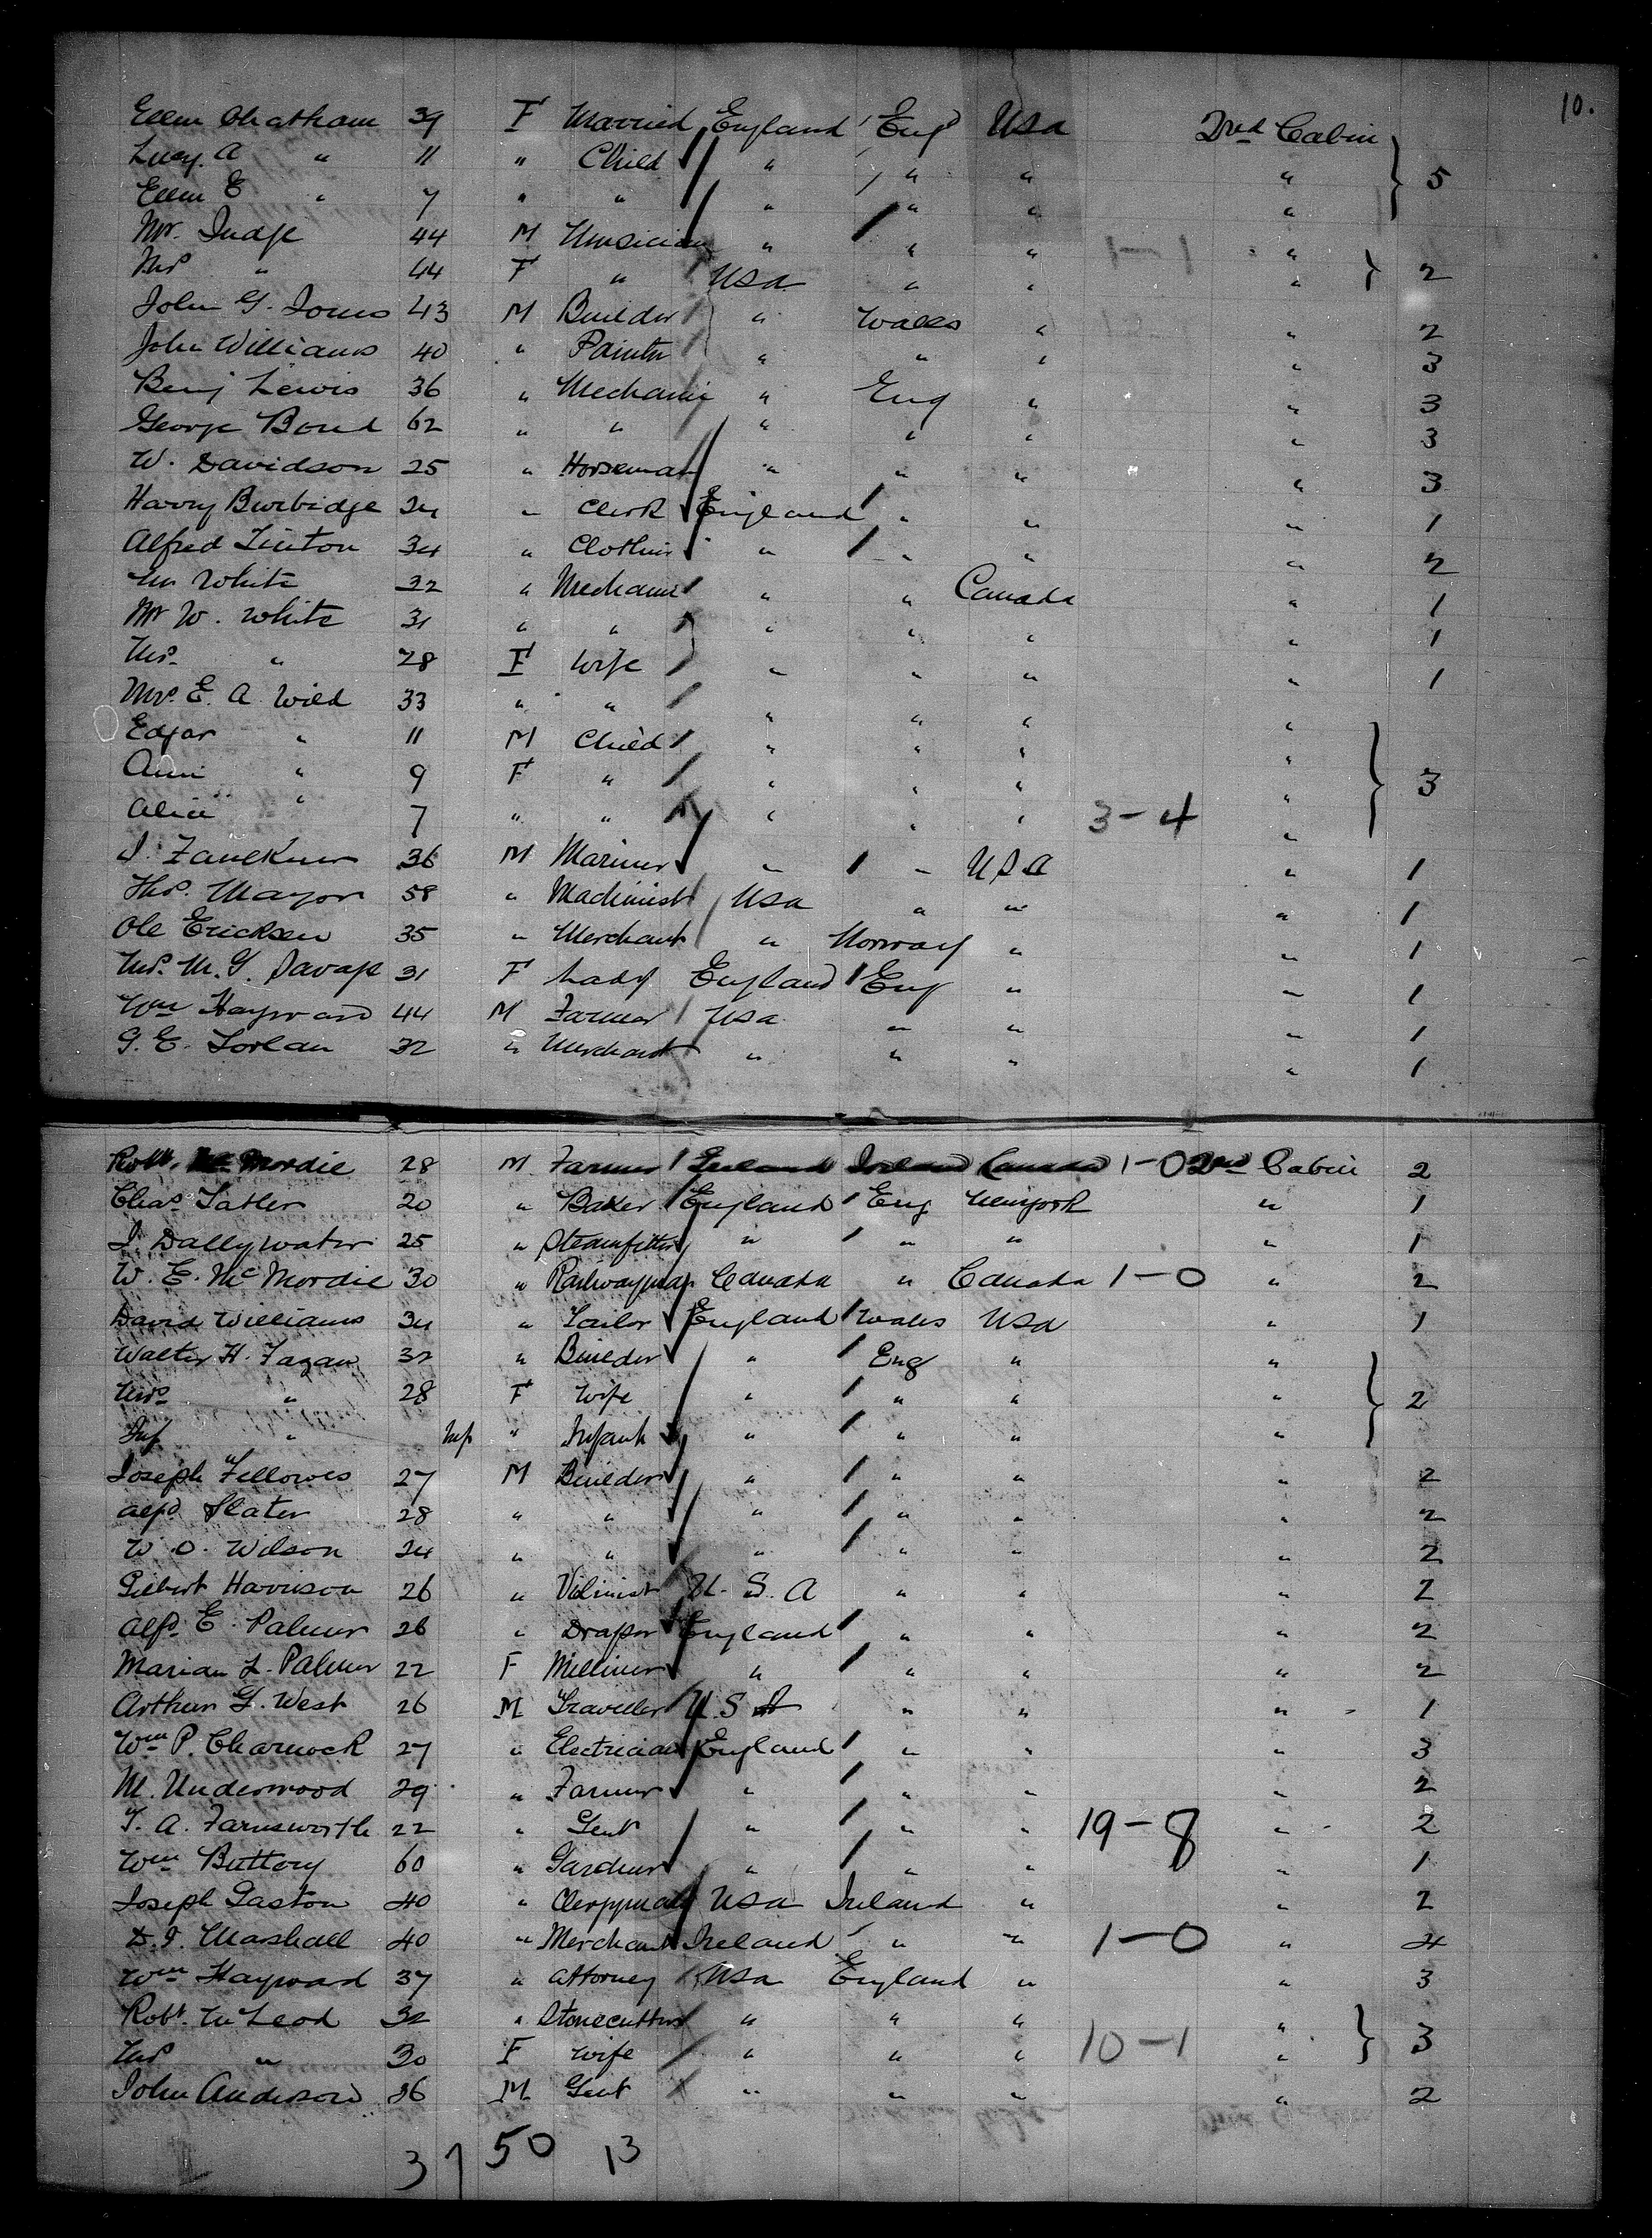 10.
Ellen Chatham 39 F Married England Eng USA 2nd Cabin
Lucy. A " 11 " Child " " " " 5
Ellen E " 7 " " " " " "
Mr. Judge 44 M Musician " " " 1-1 "
Mrs " 44 F " USA " " " 2
John G. Jones 43 M Builder " Wales " " 2
John Williams 40 " Painter " " " " 3
Benj Lewis 36 " Mechanic " Eng " " 3
George Bond 62 " " " " " " 3
W. Davidson 25 " Horseman " " " " 3
Harry Burbidge 24 " Clerk England " " " 1
Alfred Linton 34 " Clothier " " " " 2
White 32 " Mechanic " " Canada " 1
Mr W. White 31 " " " " " " 1
Mrs " 28 F Wife " " " " 1
Mrs. E. A. Wild 33 " " " " " "
Edgar " 11 M Child " " " "
Annie " 9 F " " " " " 3
Alice " 7 " " " " " 3-4 "
J. Faulkner 36 M Mariner " " USA " 1
Thos. Mayor 58 " Machinist USA " " " 1
Ole Ericksen 35 " Merchant " Norway " " 1
Mrs. M. G. Savage 31 F Lady England Eng " " 1
Wm Hayward 44 M Farmer USA " " " 1
G. E. 32 " Merchant " " " " 1
Robt. Mc Mordie 28 M Farmer Ireland Ireland Canada 1-0 2nd Cabin 2
Chas. Tatler 20 " Baker England Eng Newyork " 1
J. Dallywater 25 " Steamfitter " " " " 1
W. E. Mc Mordie 30 " Railwayman Canada " Canada 1-0 " 2
David Williams 34 " Tailor England Wales USA " 1
Walter H. Fagan 32 " Builder " Eng " "
Mrs " 28 F Wife " " " " 2
Inf " Inf " Infant " " " "
Joseph Fellowes 27 M Builder " " " " 2
Alfd. Slater 28 " " " " " " 2
W. O. Wilson 24 " " " " " " 2
Gilbert Harrison 26 " Violinist U. S. A " " " 2
Alfd. E. Palmer 26 " Draper England " " " 2
Marian L. Palmer 22 F Milliner " " " " 2
Arthur G. West 26 M Traveller U. S A " " " 1
Wm P. Charnock 27 " Electrician England " " " 3
M. Underwood 29 " Farmer " " " " 2
T. A. Farnsworth 22 " Gent " " " 19-8 " 2
Wm Buttery 60 " Gardener " " " " 1
Joseph Gaston 40 " Clergyman USA Ireland " " 2
D. J. Marshall 40 " Merchant Ireland " " 1-0 " 4
Wm Hayward 37 " Attorney USA England " " 3
Robt. McLeod 32 " Stonecutter " " " "
Mrs " 30 F Wife " " " 10-1 " 3
John Anderson 26 M Gent " " " " 2
37 50 13